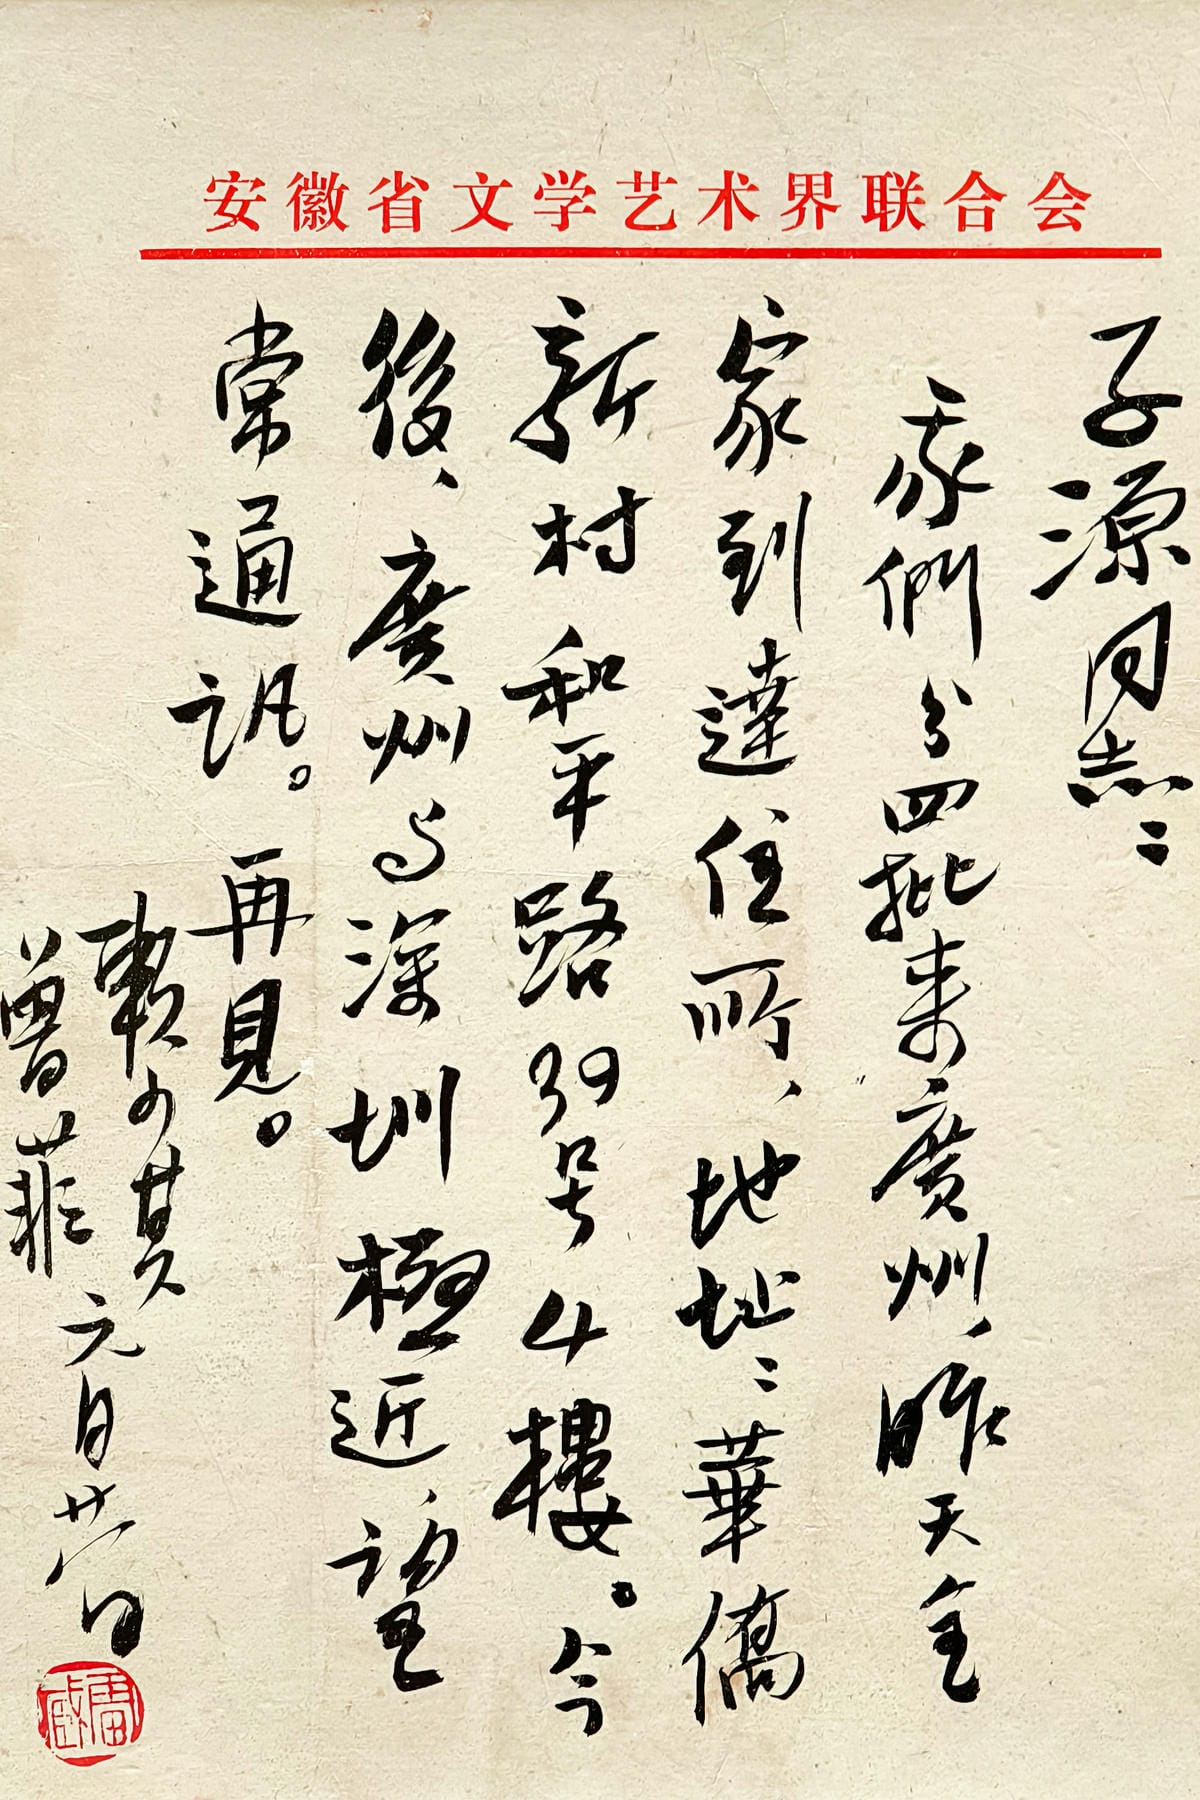 安徽省文学艺术界联合会
子源同志：
我們分四批来廣州、昨天全
家到達住所、地址：華僑
新村和平路39号4樓。今
後、廣州与深圳極近、望
常通訊。再見。
賴少其
曾菲
元月廿六日